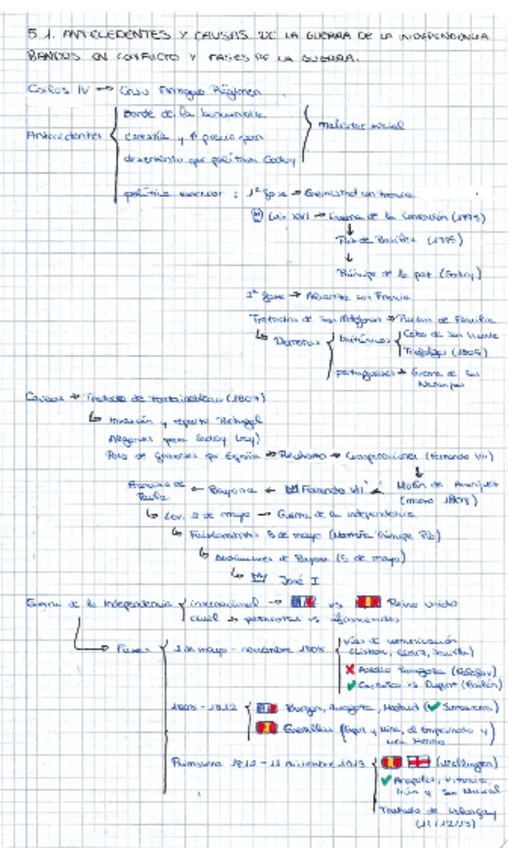 5.1. ANTECEDENTES Y CAUSAS DE LA GUERRA DE LA INDEPENDENCIA
BANDOS EN CONFLICTO Y FASES DE LA GUERRA.
Carlos IV → Crisis Antiguo Régimen
Antecedentes
borde de la bancarrota
carestía y ↑ precio pan
descontento por política Godoy
malestar social
política exterior : 1ª fase → Enemistad con Francia
Luis XVI → Guerra de la Convención (1793)
↓
Paz de Basilea (1795)
↓
Príncipe de la paz (Godoy)
2ª fase → Alianza con Francia
Tratados de San Ildefonso → Pactos de Familia
↳ Derrotas
británicos
Cabo de San Vicente
Trafalgar (1805)
portugueses → Guerra de las Naranjas
Causas → Tratado de Fontainebleau (1807)
↳ Invasión y reparto Portugal
Algarves para Godoy
Paso de franceses por España → Rechazo → Conspiraciones (Fernando VII)
↓
Motín de Aranjuez
(marzo 1808)
← Bayona ← Fernando VII ←
↳ Lev. 2 de mayo → Guerra de la independencia
↳ Fusilamientos 3 de mayo (Montaña Príncipe Pío)
↳ Abdicaciones de Bayona (5 de mayo)
↳ José I
Guerra de la Independencia
internacional → vs Reino Unido
civil → patriotas vs afrancesados
Fases
2 de mayo - noviembre 1808
vías de comunicación
(Lisboa, Sevilla)
✗ Asedio Zaragoza (Palafox)
✓ Castaños vs Dupont (Bailén)
1808 - 1812
Burgos, Zaragoza, Madrid (✓ Somosierra)
Guerrillas (Espoz y Mina, el Empecinado y
cura Merino)
Primavera 1812 - 11 diciembre 1813
(Wellington)
✓ Arapiles, Vitoria,
Irún y San Marcial
Tratado de Valençay
(11/12/13)